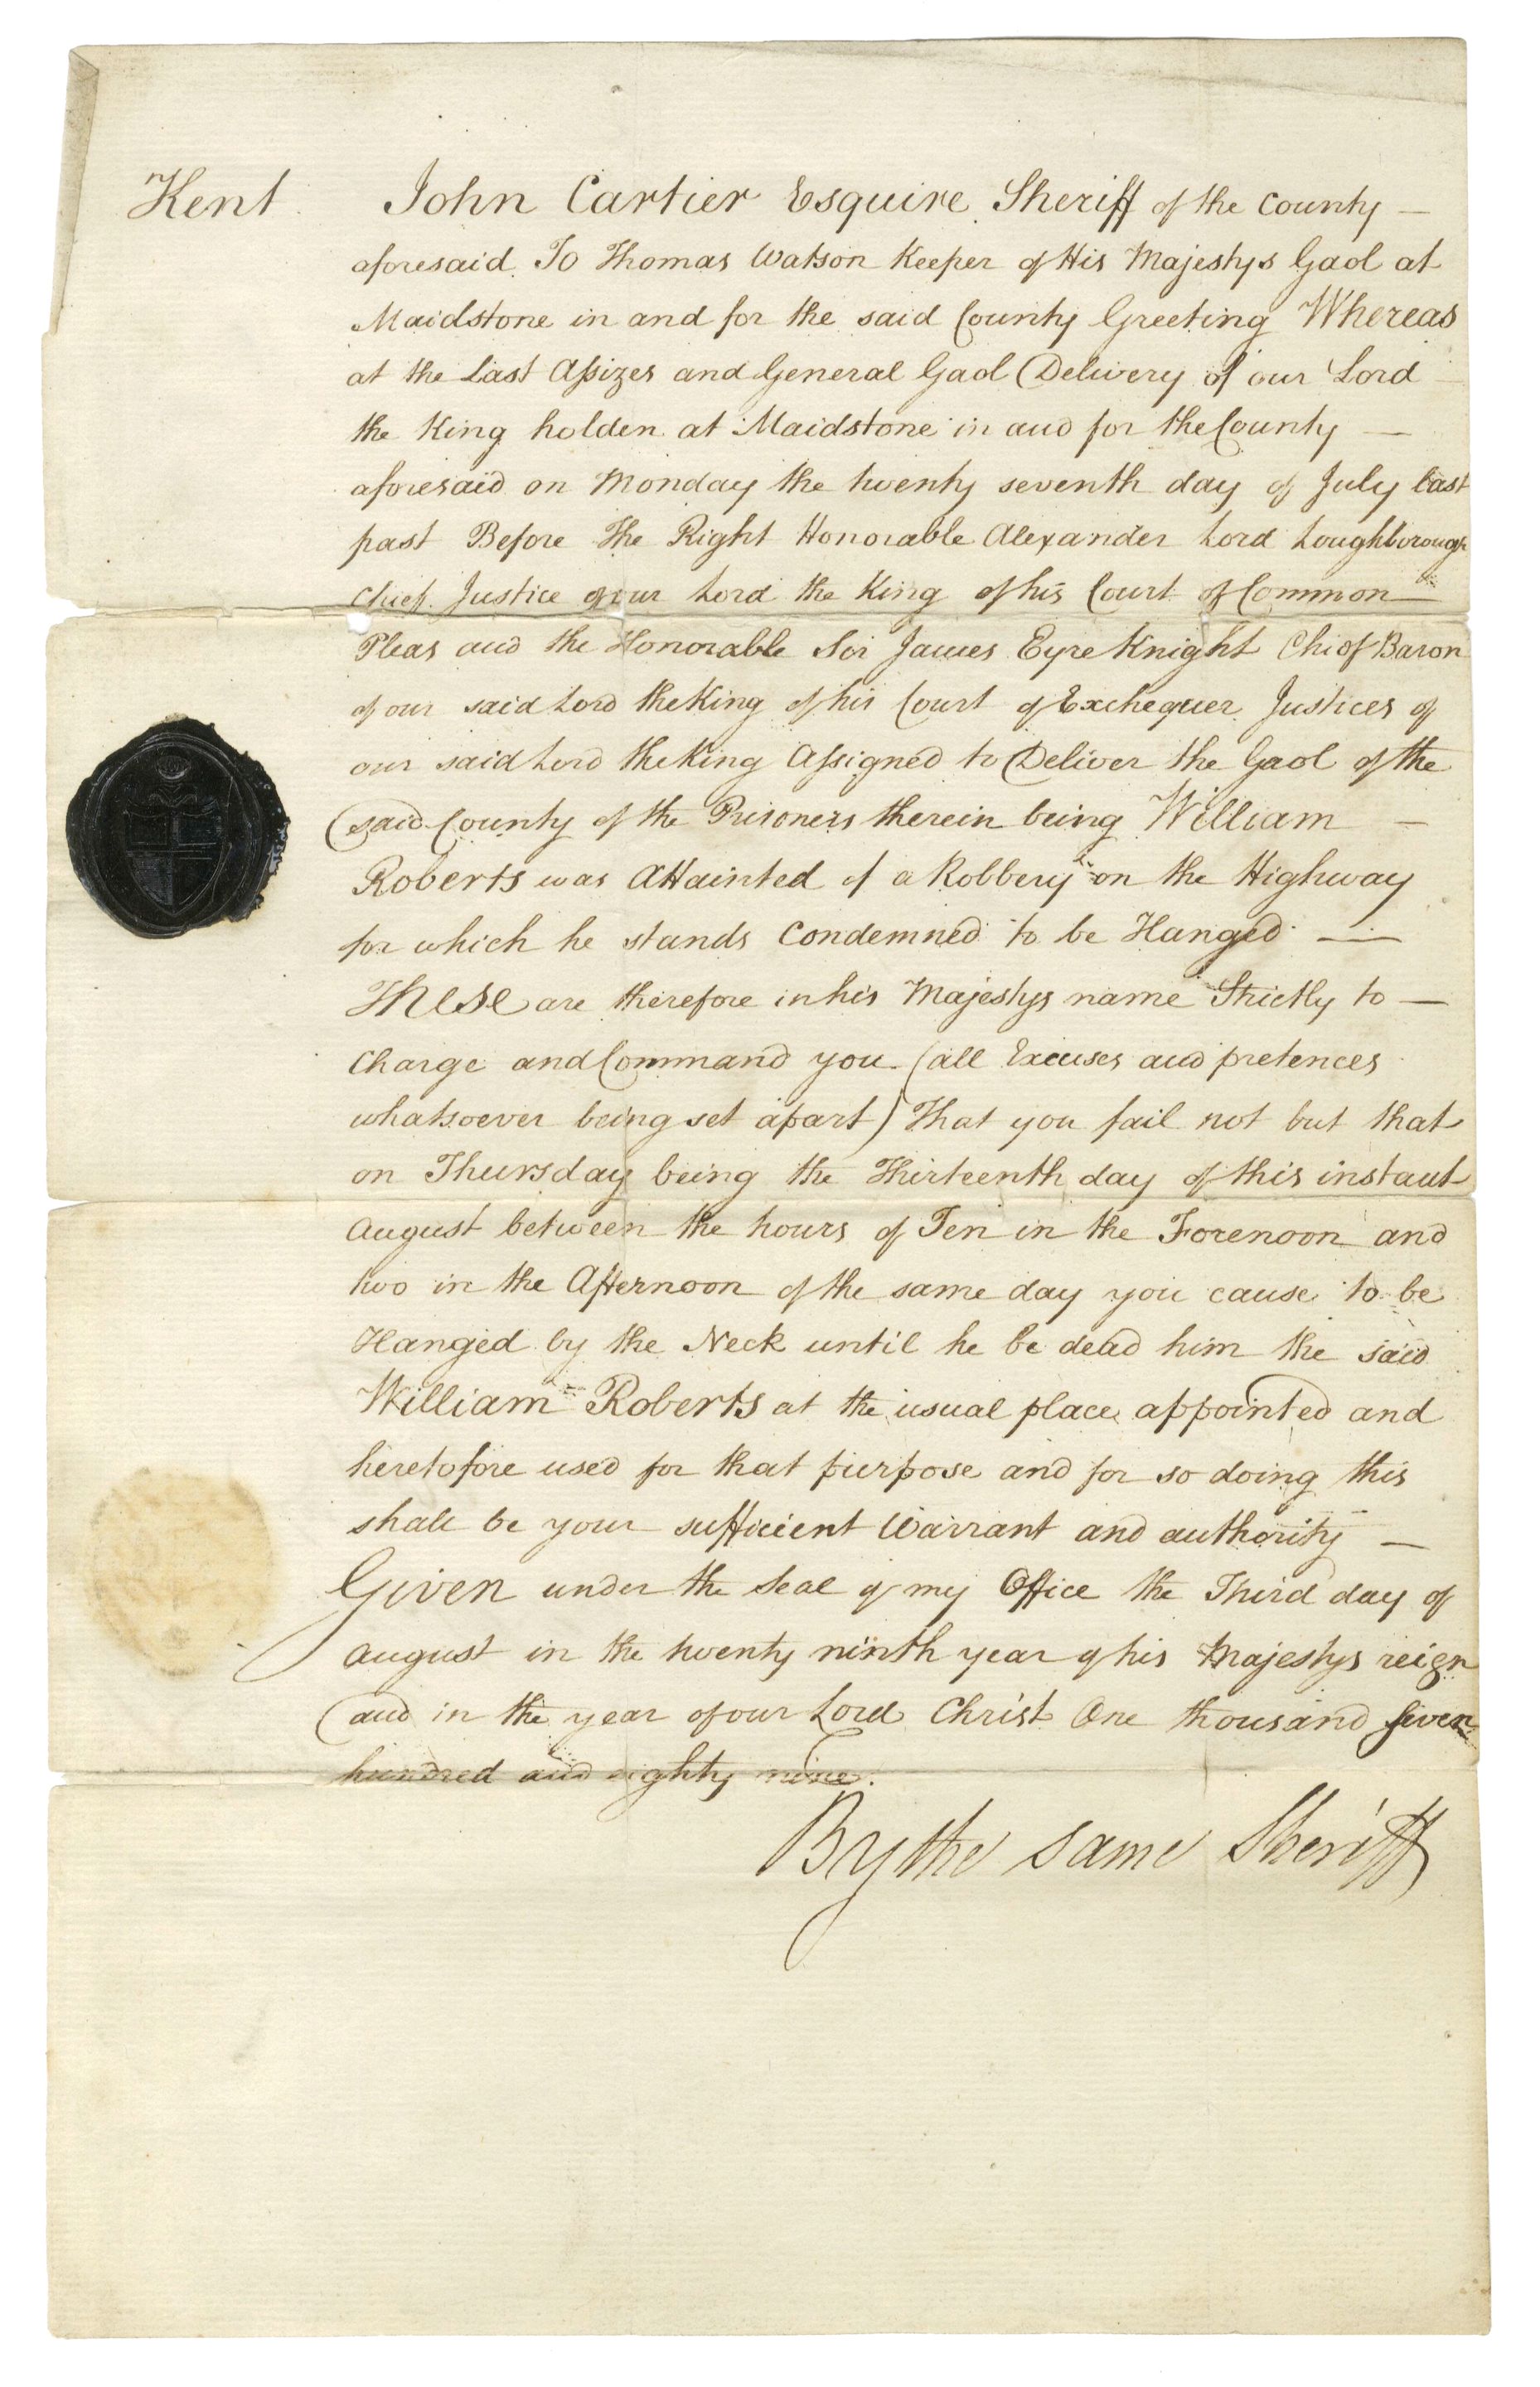 Kent John Cartier Esquire Sheriff of the County —
aforesaid To Thomas Watson Keeper of His Majestys Gaol at
Maidstone in and for the said County Greeting Whereas
at the Last Assizes and General Gaol Delivery of our Lord —
the King holden at Maidstone in and for the County —
aforesaid on Monday the twenty seventh day of July last
past Before The Right Honorable Alexander Lord Loughborough
Chief Justice of our Lord the King of his Court of Common —
Pleas and the Honorable Sir James Eyre Knight Chief Baron
of our said Lord the King of his Court of Exchequer Justices of
our said Lord the King Assigned to Deliver the Gaol of the
said County of the Prisoners therein being William —
Roberts was Attainted of a Robbery on the Highway
for which he stands Condemned to be Hanged —
These are therefore in his Majestys name Strictly to —
Charge and Command you (all Excuses and pretences
whatsoever being set apart) That you fail not but that
on Thursday being the Thirteenth day of this instant
August between the hours of Ten in the Forenoon and
two in the Afternoon of the same day you cause to be
Hanged by the Neck until he be dead him the said
William Roberts at the usual place appointed and
heretofore used for that purpose and for so doing this
shall be your sufficient Warrant and authority —
Given under the Seal of my Office the Third day of
August in the twenty ninth year of his Majestys reign
and in the year of our Lord Christ One thousand seven
hundred and eighty nine.
By the same Sheriff